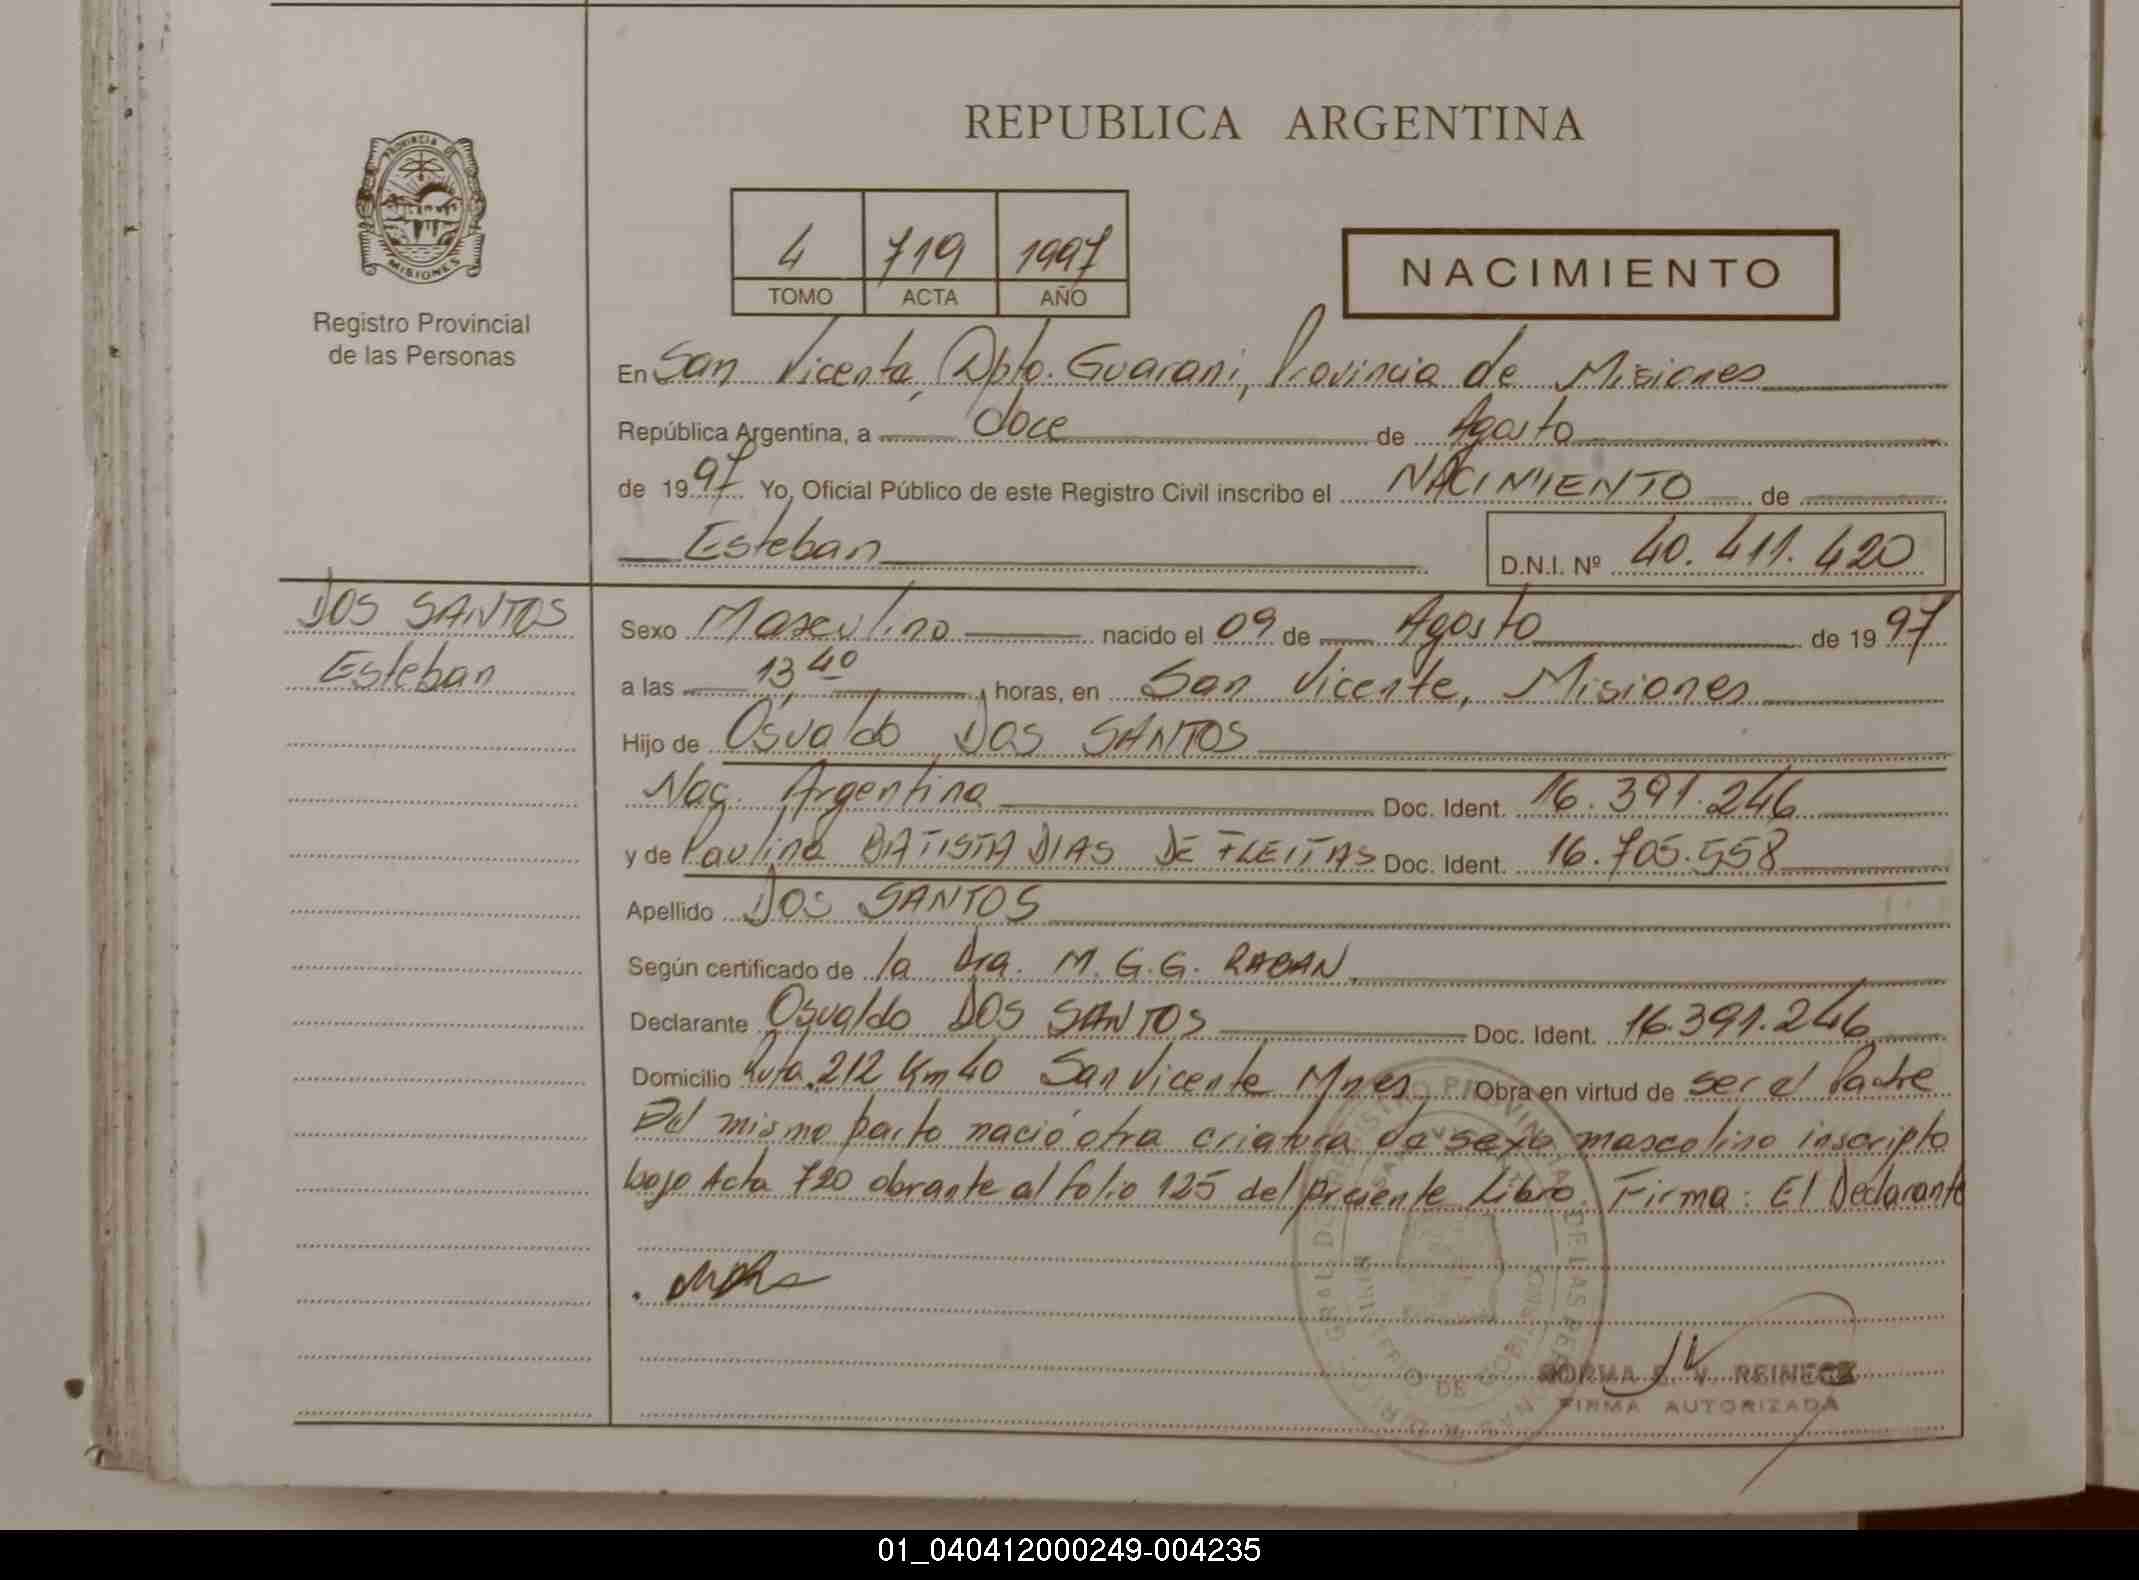 REPUBLICA ARGENTINA
PROVINCIA DE
MISIONES
Registro Provincial
de las Personas
4 719 1997
TOMO ACTA AÑO
NACIMIENTO
En San Vicente, Dpto. Guarani, Provincia de Misiones
República Argentina, a doce de Agosto
de 1997 Yo, Oficial Público de este Registro Civil inscribo el NACIMIENTO de
Esteban D.N.I. Nº 40.411.420
DOS SANTOS
Esteban
Sexo Masculino nacido el 09 de Agosto de 1997
a las 13,40 horas, en San Vicente, Misiones
Hijo de Osvaldo DOS SANTOS
Nac. Argentina Doc. Ident. 16.391.246
y de Paulina BATISTA DIAS DE FLEITAS Doc. Ident. 16.705.558
Apellido DOS SANTOS
Según certificado de la Dra. M.G.G. RABAN
Declarante Osvaldo DOS SANTOS Doc. Ident. 16.391.246
Domicilio Ruta 212 Km 40 San Vicente Mnes Obra en virtud de ser el Padre
Del mismo parto nació otra criatura de sexo masculino inscripto
bajo Acta 720 obrante al folio 125 del presente Libro. Firma: El Declarante
NORMA E. V. REINECK
FIRMA AUTORIZADA
01_040412000249-004235